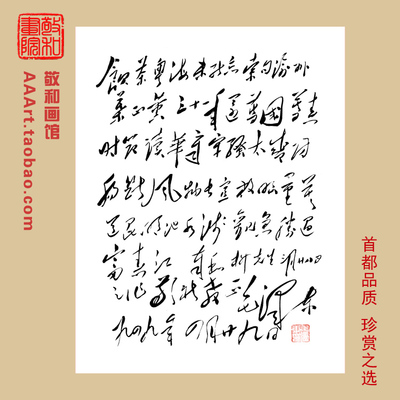 敬和
畫院
敬和画馆
AAArt.taobao.com
飲茶粤海未能忘索句渝州
葉正黄三十一年還舊國落花
时节读华章牢骚太盛防
肠断风物长宜放眼量莫
道昆明池水浅观鱼胜过
富春江 奉和柳先生
之作 敬祈教正 毛泽东
一九四九年四月廿九日
首都品质 珍赏之选